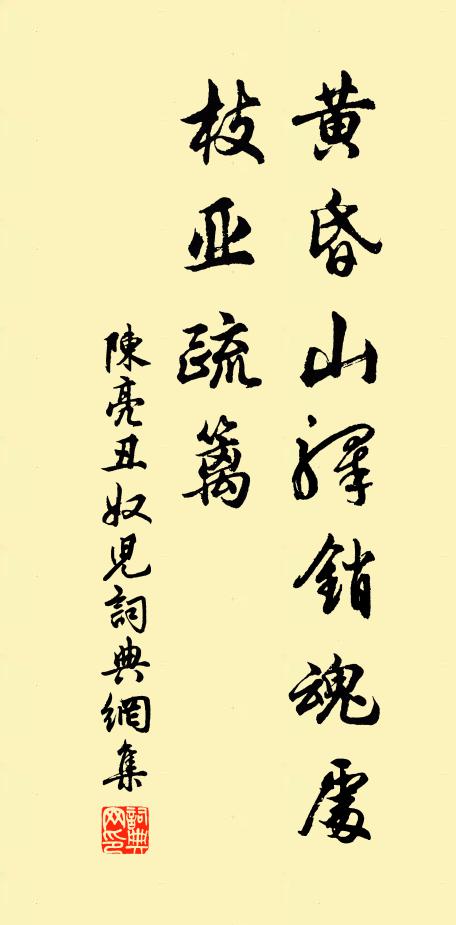 黃昏山驛銷魂處
枝亚疏篱
陳亮丑奴児詞典網集
詞典网印